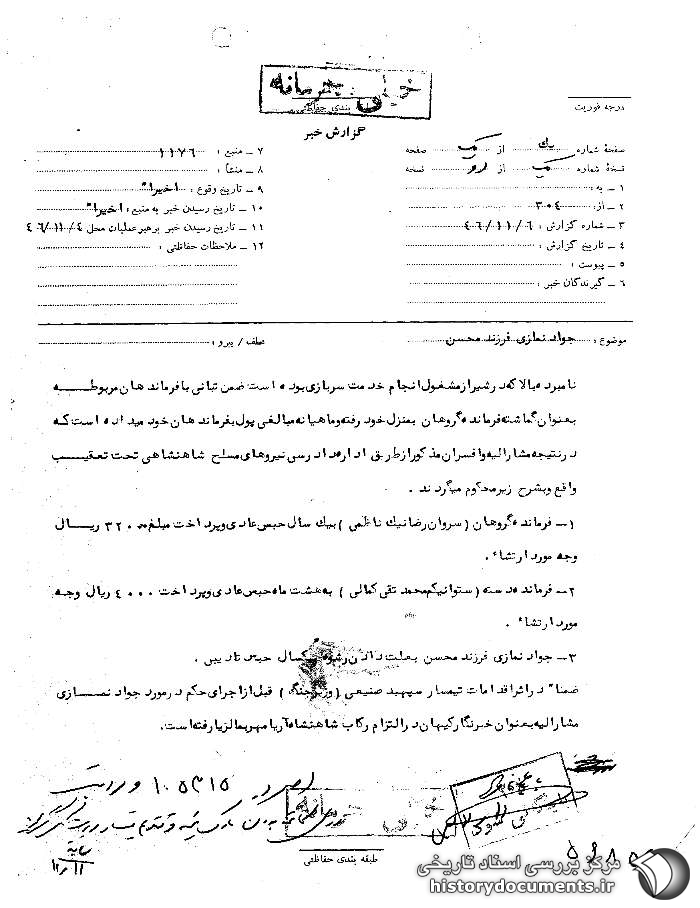 خیلی محرمانه
طبقه بندی حفاظتی
درجه فوریت
گزارش خبر
صفحهٔ شماره یک از یک صفحه
نسخهٔ شماره یک از دو نسخه
۱ ـ به :
۲ ـ از : ۳۰۴
۳ ـ شماره گزارش : ۴۶/۱۱/۶
۴ ـ تاریخ گزارش :
۵ ـ پیوست :
۶ ـ گیرندگان خبر :
۷ ـ منبع : ۱۱۷۶
۸ ـ منشأ :
۹ ـ تاریخ وقوع : اخیرا"
۱۰ ـ تاریخ رسیدن خبر به منبع : اخیرا"
۱۱ ـ تاریخ رسیدن خبر برهبر عملیات محل ۴۶/۱۱/۴
۱۲ ـ ملاحظات حفاظتی :
موضوع : جواد نمازی فرزند محسن
عطف / پیرو :
نامبرده بالا که در شیراز مشغول انجام خدمت سربازی بوده است ضمن تبانی با فرماندهان مربوطه
بعنوان گماشته فرمانده گروهان بمنزل خود رفته و ماهیانه مبالغی پول بفرماندهان خود میداده است که
در نتیجه مشارالیه و افسران مذکور از طریق اداره دادرسی نیروهای مسلح شاهنشاهی تحت تعقیب
واقع و بشرح زیر محکوم میگردند .
۱ـ فرمانده گروهان ( سروان رضا نیک ناظمی ) بیک سال حبس عادی و پرداخت مبلغ ۳۲۰۰۰ ریال
وجه مورد ارتشاء .
۲ـ فرمانده دسته ( ستوانیکم محمد تقی کمالی ) به هشت ماه حبس عادی و پرداخت ۴۰۰۰ ریال وجه
مورد ارتشاء .
۳ـ جواد نمازی فرزند محسن بعلت دادن رشوه یکسال حبس تادیبی .
ضمنا" در اثر اقدامات تیمسار سپهبد صنیعی ( وزیر جنگ ) قبل از اجرای حکم در مورد جواد نمازی
مشارالیه بعنوان خبرنگار کیهان در التزام رکاب شاهنشاه آریامهر بمالزیا رفته است .
طبقه بندی حفاظتی
مرکز بررسی اسناد تاریخی
historydocuments.ir